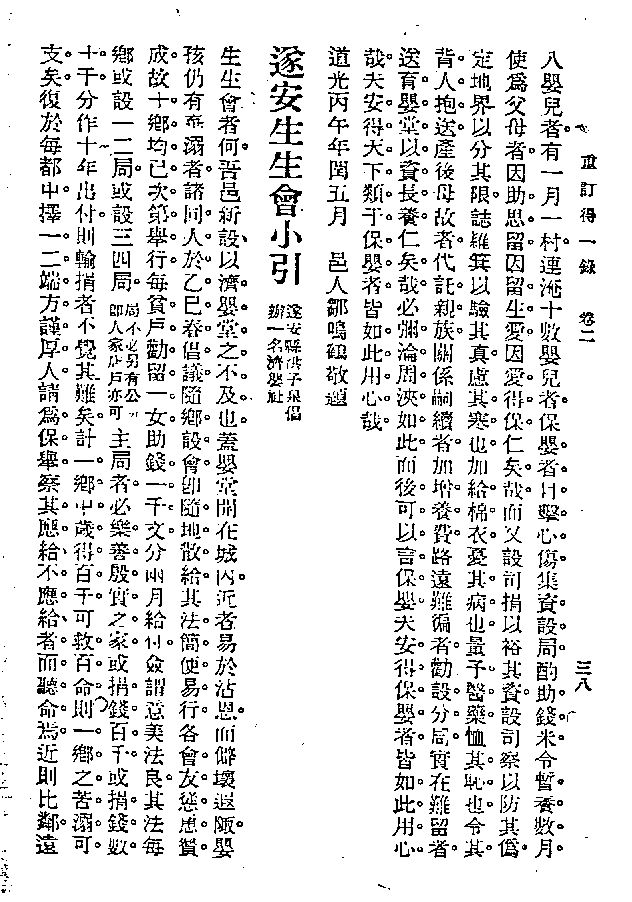 重訂得一錄 卷二 三八
八嬰兒者有一月一村連淹十數嬰兒者保嬰者目擊心傷集資設局酌助錢米令暫養數月
使爲父母者因助思留因留生愛因愛得保仁矣哉而又設司捐以裕其資設司察以防其僞
定地界以分其限誌羅箕以驗其真慮其寒也加給棉衣憂其病也量予醫藥恤其恥也令其
背人抱送產後母故者代託親族關係嗣續者加增養費路遠難徧者勸設分局實在難留者
送育嬰堂以資長養仁矣哉必彌淪周浹如此而後可以言保嬰夫安得保嬰者皆如此用心
哉夫安得天下類于保嬰者皆如此用心哉
道光丙午年閏五月 邑人鄒鳴鶴敬題
遂安生生會小引 遂安縣洪子泉倡
辦一名濟嬰社
生生會者何吾邑新設以濟嬰堂之不及也蓋嬰堂開在城內近者易於沾恩而僻壤遐陬嬰
孩仍有棄溺者諸同人於乙巳春倡議隨鄉設會卽隨地散給其法簡便易行各會友慫恿贊
成故十鄉均已次第舉行每貧戶勸留一女助錢一千文分兩月給付僉謂意美法良其法每
鄉或設一二局或設三四局 局不必另有公所
卽人家店戶亦可 主局者必樂善殷實之家或捐錢百千或捐錢數
十千分作十年出付則輸捐者不覺其難矣計一鄉中歲得百千可救百命則一鄉之苦溺可
支矣復於每都中擇一二端方謹厚人請爲保舉察其應給不應給者而聽命焉近則比鄰遠